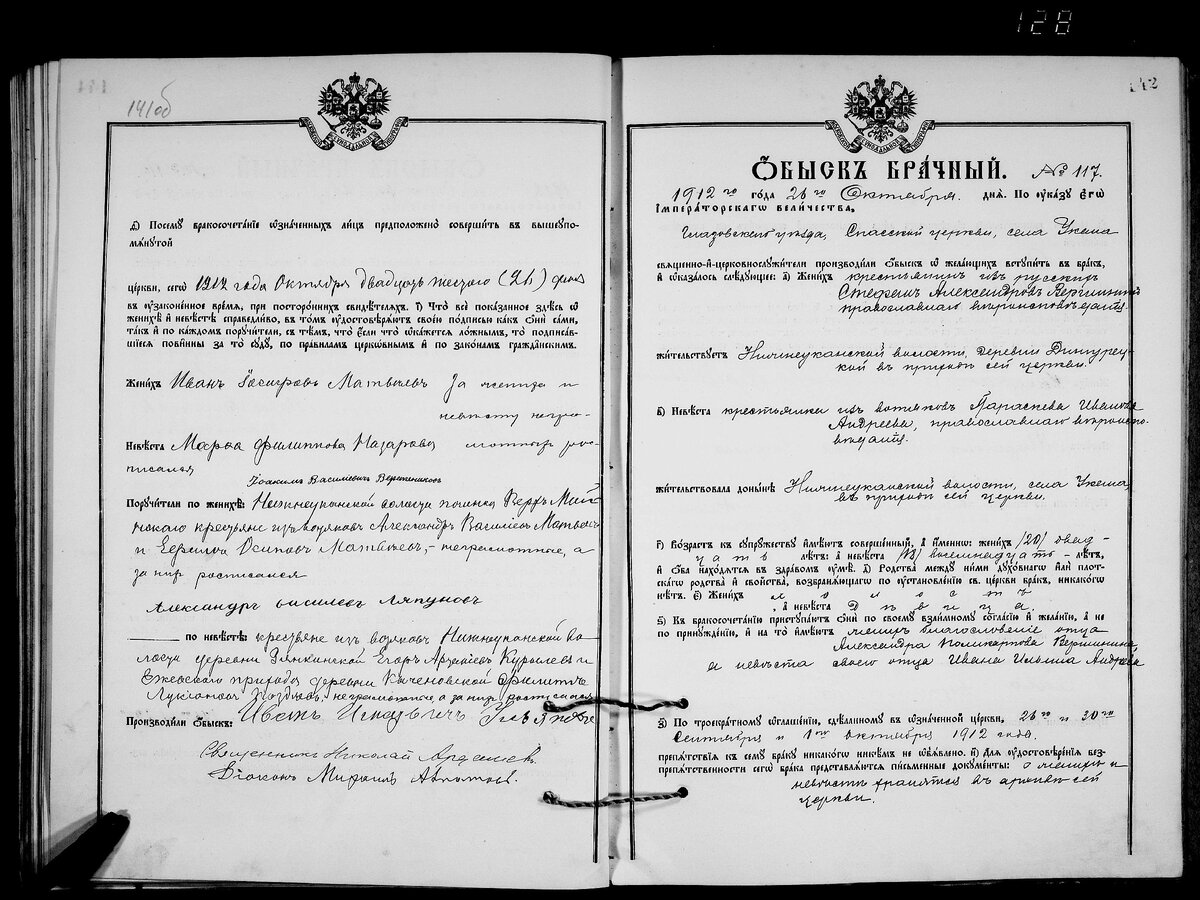 128
141об
Ѳ) Посему бракосочетанїе ѡзначенныхъ лицъ предположено совершить въ вышеупо-
мянутой
церкви, сегѡ 1912 года Октября двадцать шестого (26) дня
въ узаконенное время, при постороннихъ свидѣтеляхъ. І) Что все показанное здѣсь ѡ
женихѣ и невѣстѣ справедливо, въ томъ удостовѣряютъ своею подписью какъ они сами,
такъ и по каждомъ поручители, съ тѣмъ, что если что ѡкажется ложнымъ, то подписав-
шїеся повинны за то суду, по правиламъ церковнымъ и по законамъ гражданскимъ.
Женихъ Иванъ Матвѣевъ За жениха и
невѣсту негра-
Невѣста Марѳа Филиппова Назарова
писался
Іоакимъ Василіевъ Вершининъ
Поручители по женихѣ: Нижнеуканской волости починка
крестьяне изъ вотяковъ Александръ Василіевъ Матвѣевъ
и Осиповъ Матвѣевъ, – неграмотные, а
за нихъ росписался
Александръ Василіевъ Ляпуновъ
по невѣстѣ: крестьяне изъ вотяковъ Нижнеуканской во-
лости деревни Зянкинской Егоръ
прихода деревни Филиппъ
неграмотные а за нихъ росписался
Производили ѡбыскъ: Иванъ
Священникъ Николай
Діаконъ Михаилъ
142
ѠБЫСКЪ БРАЧНЫЙ. № 117.
1912го года 26го Октября. дня. По указу Егѡ
Императорскагѡ величества,
Глазовского уѣзда, Спасской церкви, села Укана
священно-и-церковнослужители производили ѡбыскъ ѡ желающихъ вступить въ бракъ,
и ѡказалось слѣдующее: а) Женихъ крестьянинъ изъ русскихъ
Стефанъ Александровъ Вершининъ
православнаго вѣроисповѣданія
жительствуетъ Нижнеуканской волости, деревни
въ приходѣ сей церкви.
б) Невѣста крестьянка изъ вотяковъ Параскева Иванова
Андреева, православнаго вѣроиспо-
вѣданія
жительствовала донынѣ Нижнеуканской волости, села Укана,
въ приходѣ сей церкви.
г) Возрастъ къ супружеству имѣютъ совершенный, а именно: женихъ /20/ двад-
цать лѣтъ: а невѣста /18/ восемнадцать – лѣтъ,
и оба находятся въ здравомъ умѣ. д) Родства между ними духовнагѡ или плот-
скагѡ родства и свойства, возбраняющагѡ по установленїю св. церкви бракъ, никакогѡ
нѣтъ. е) Женихъ холостъ
, а невѣста дѣвица.
ѕ) Къ бракосочетанїю приступаютъ они по своему взаимному согласїю и желанїю, а не
по принужденїю, и на то имѣютъ женихъ благословеніе отца
Александра Поликарпова Вершинина,
а невѣста своего отца Ивана Ильина Андреева
з) По троекратному ѡглашенїю, сдѣланному въ ѡзначенной церкви, 26го и 30го
Сентября и 1го октября 1912 года.
препятствїя къ сему браку никакогѡ никѣмъ не ѡбъявлено. и) Для удостовѣренїя без-
препятственности сегѡ брака представляются письменные документы: о женихѣ и
невѣстѣ хранятся въ архивѣ сей
церкви.